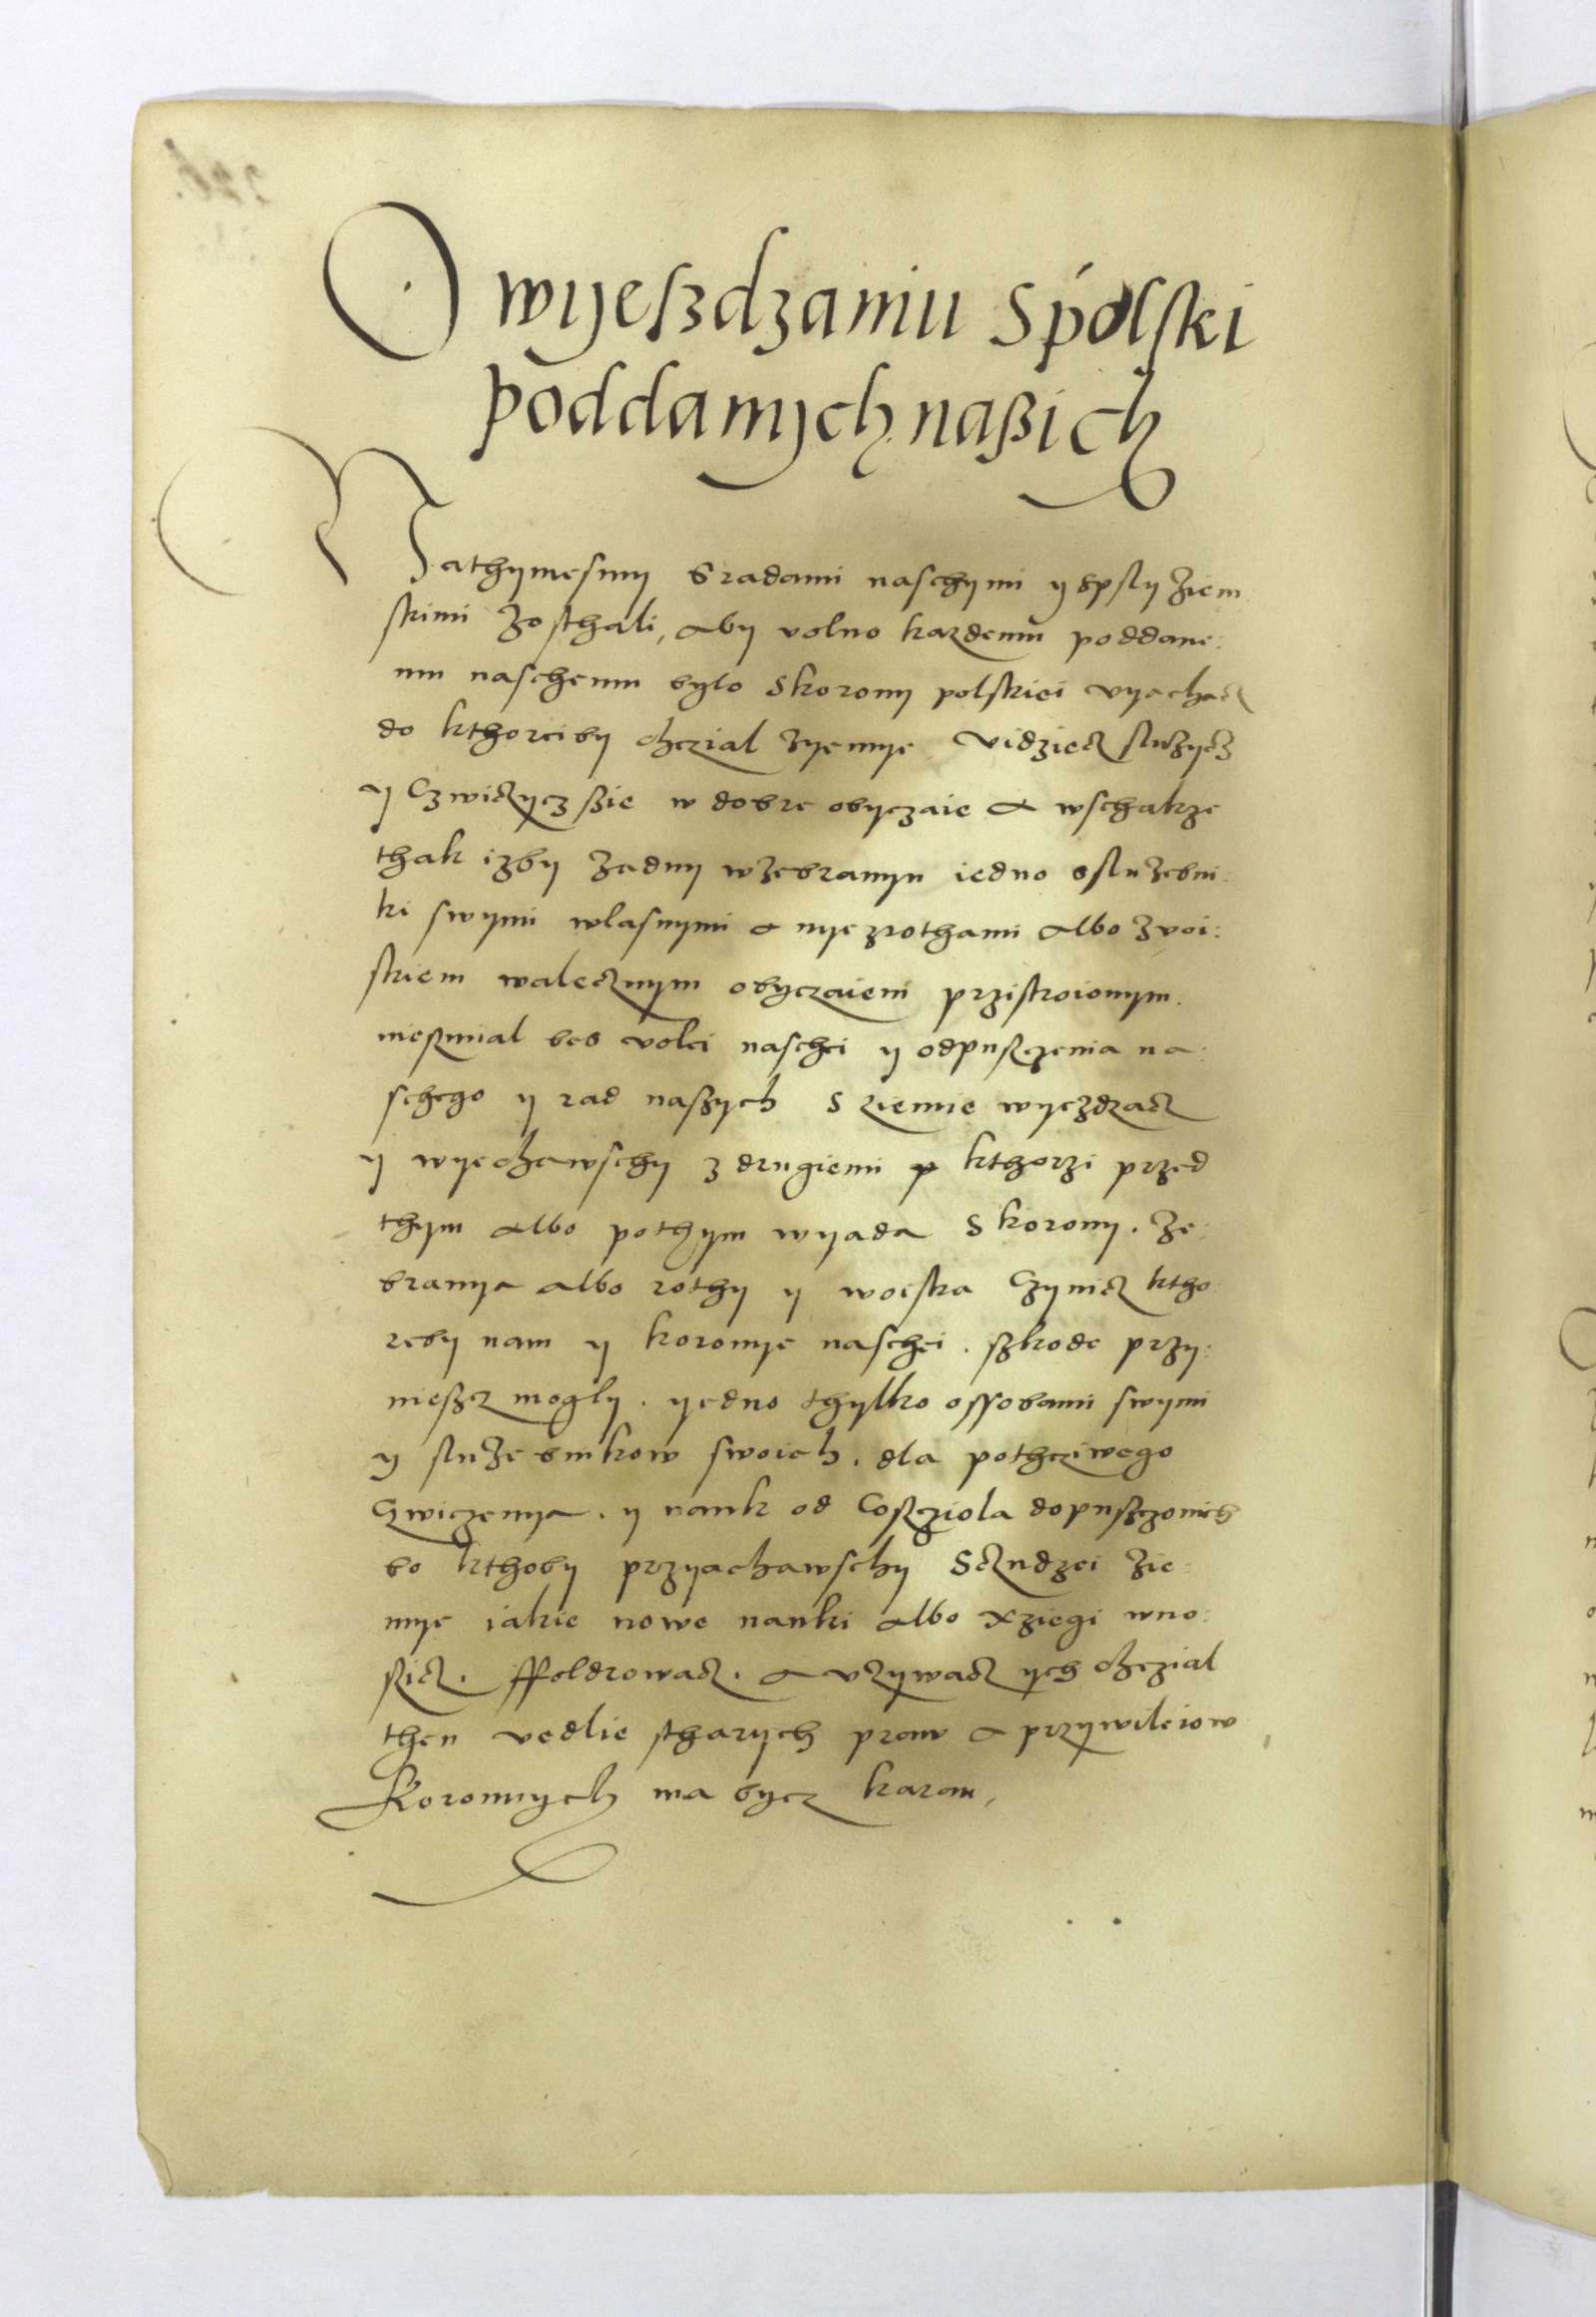 O wyeszdzaniu s polski
poddanych naßich
Na thymesmy s radami naschymi y s posly ziem
skimi zosthali, aby volno kazdemu poddane:
mu naschemu bylo s korony polskiei vyachacz
do kthoreiby chczial zyemye vidziecz sluzycz
y Czwiczycz ßie w dobre obyczaie a wschakze
thak izby zadny w zebranyu iedno s sluzebni:
ki swymi wlasnymi a nye z rothami albo z voi:
skiem walecznym obyczaiem przistroionym.
niesmial bes volei naschei y odpusczenia na:
schego y rad naszych s ziemie wyezdzacz
y wyechawschy z drugiemi kthorzi przed
thym albo pothym wyada s korony. ze:
branya albo rothy y woiska Czynicz ktho
reby nam y koronye naschei. szkode przy:
nieszcz mogly. yedno thylko ossobami swymi
y sluzebnikow swoich. dla pothcziwego
Czwiczenya. y nauk od Coscziola dopusczonich
bo kthoby przyachawschy s Czudzei zie:
mye iakie nowe nauki albo xziegi wno:
szicz. ffoldrowacz. a vzywacz ych chczial
then vedlie starych praw a przywileiow
Koronnych ma bycz karan,